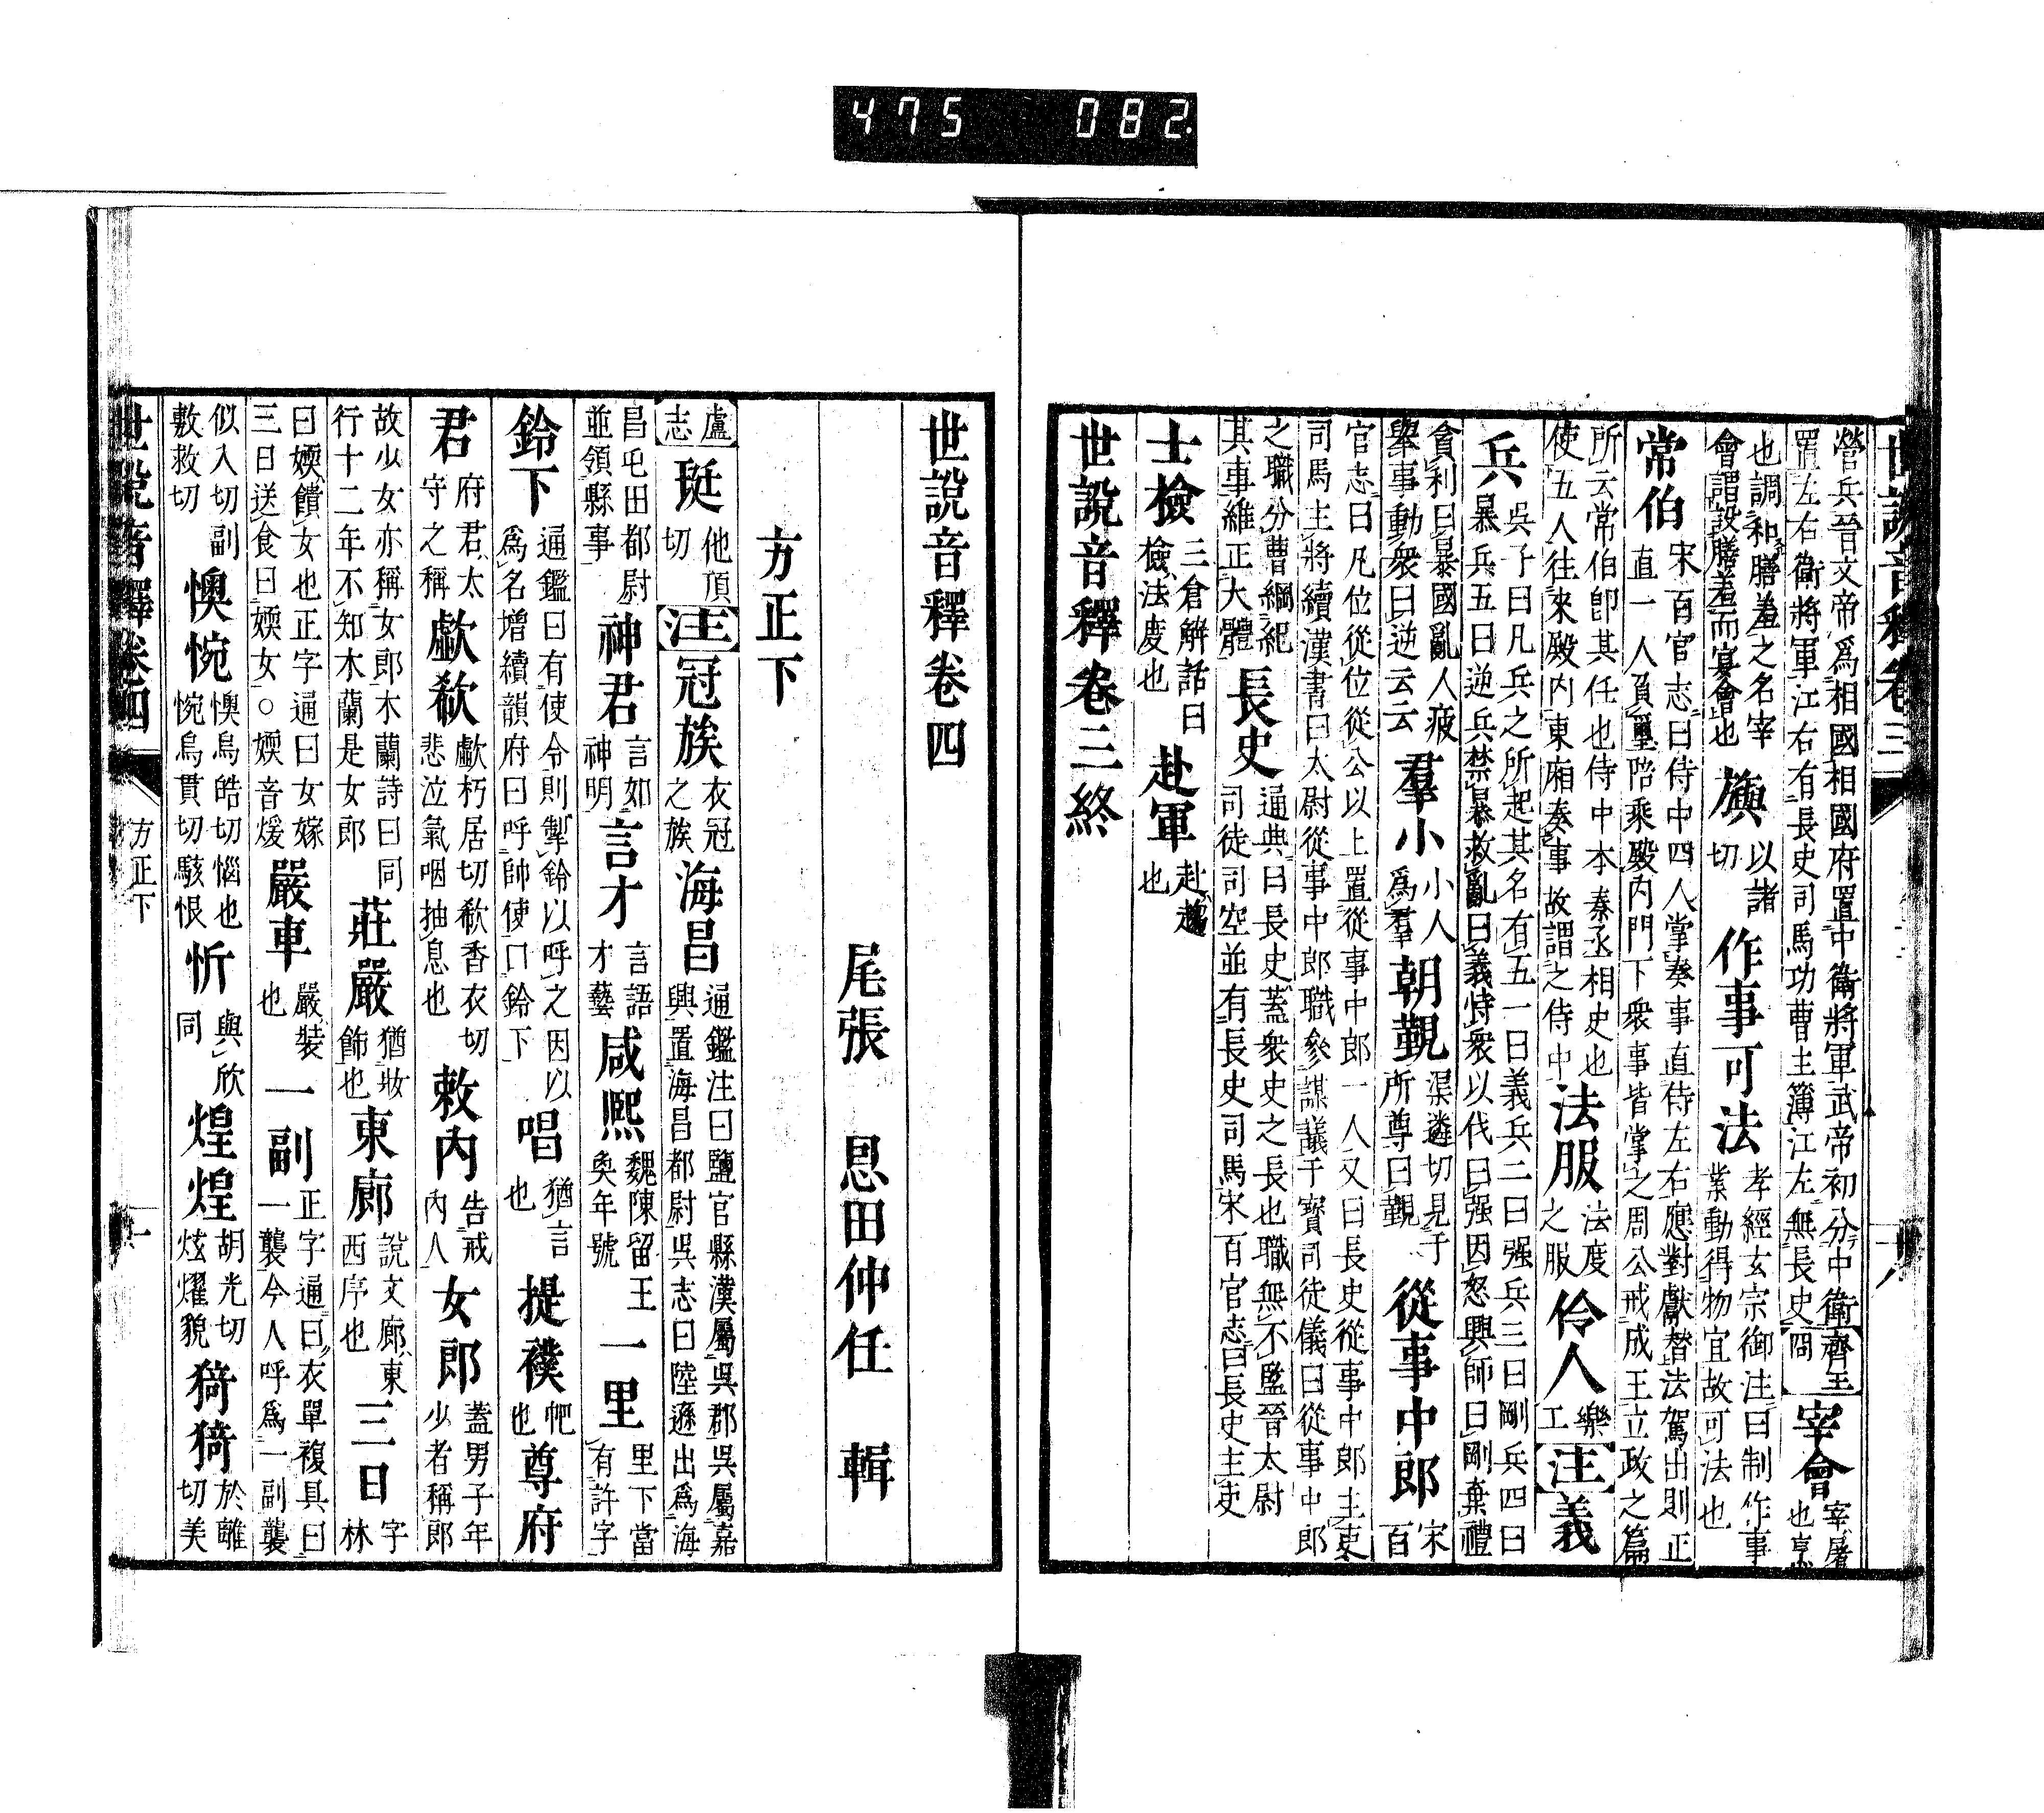 475 082
世說音釋卷三
十八
營兵晉文帝爲相國相國府置中衞將軍武帝初分中衞
置左右衞將軍江右有長史司馬功曹主簿江左無長史
齊王冏
宰會
宰屠也烹
也調和膳羞之名宰
會謂設膳羞而宴會也
旟
以諸切
作事可法
孝經玄宗御注曰制作事
業動得物宜故可法也
常伯
宋百官志曰侍中四人掌奏事直侍左右應對獻替法駕出則正
直一人負璽陪乘殿內門下衆事皆掌之周公戒成王立政之篇
所云常伯卽其任也侍中本秦丞相史也
使五人往來殿內東廂奏事故謂之侍中
法服
法度之服
伶人
樂工
注
義兵
吳子曰凡兵之所起其名有五一曰義兵二曰强兵三曰剛兵四曰
暴兵五曰逆兵禁暴救亂曰義恃衆以伐曰强因怒興師曰剛棄禮
貪利曰暴國亂人疲
舉事動衆曰逆云云
羣小
小人爲羣
朝覲
渠遴切見于
所尊曰覲
從事中郎
宋百
官志曰凡位從位從公以上置從事中郎一人又曰長史從事中郎主吏
司馬主將續漢書曰太尉從事中郎職參謀議干寶司徒儀曰從事中郎
之職分曹綱紀
其事維正大體
長史
通典曰長史蓋衆史之長也職無不監晉太尉
司徒司空並有長史司馬宋百官志曰長史主吏
士檢
三倉解詁曰
檢法度也
赴軍
赴趨也
世說音釋卷三終
世說音釋卷四
尾張 恩田仲任 輯
方正下
盧志
珽
他頂切
注
冠族
衣冠之族
海昌
通鑑注曰鹽官縣漢屬吳郡吳屬嘉
興置海昌都尉吳志曰陸遜出爲海
昌屯田都尉
並領縣事
神君
言如神明
言才
言語才藝
咸熙
魏陳留王
奐年號
一里
里下當
有許字
鈴下
通鑑曰有使令則掣鈴以呼之因以
爲名增續韻府曰呼帥使曰鈴下
唱
猶言也
提襆
帊也
尊府君
府君太
守之稱
歔欷
歔朽居切欷香衣切
悲泣氣咽抽息也
敕內
告戒內人
女郎
蓋男子年
少者稱郎
故少女亦稱女郎木蘭詩曰同
行十二年不知木蘭是女郎
莊嚴
猶妝飾也
東廊
說文廊東
西序也
三日
字林
曰㛪饋女也正字通曰女嫁
三日送食曰㛪女○㛪音煖
嚴車
嚴裝也
一副
正字通曰衣單複具曰
一襲今人呼爲一副襲
似入切副
敷救切
懊惋
懊烏皓切惱也
惋烏貫切駭恨
忻
與欣同
煌煌
胡光切
炫燿貌
猗猗
於離
切美
世說音釋卷四
方正下
一